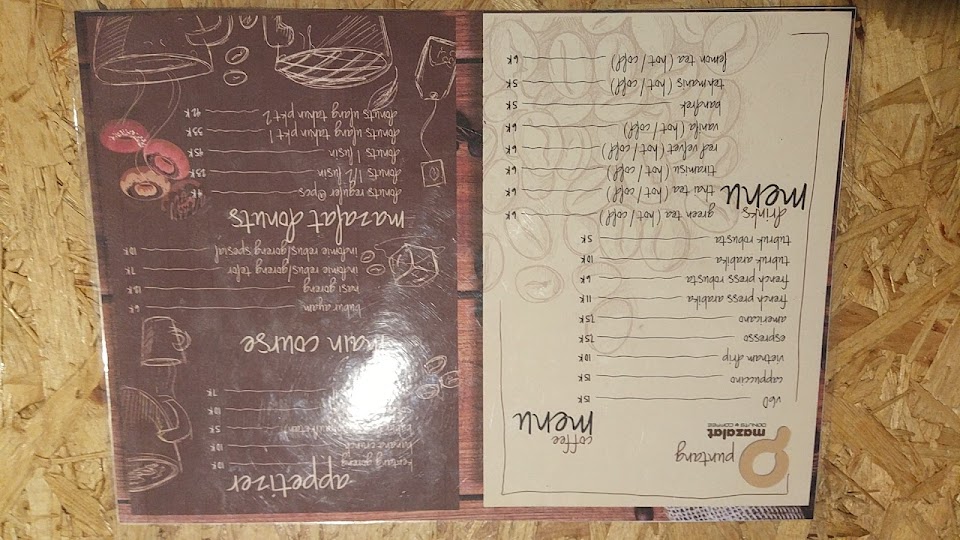 puntang
mazalat
DONUTS & COFFEE
coffee
menu
v60 15K
cappuccino 15K
vietnam drip 10K
espresso 7.5K
americano 7.5K
french press arabika 11K
french press robusta 6K
tubruk arabika 10K
tubruk robusta 5K
drinks
menu
green tea (hot / cold) 6K
thai tea (hot / cold) 6K
tiramisu (hot / cold) 6K
red velvet (hot / cold) 6K
vanila (hot / cold) 6K
bandrek 5K
teh manis (hot / cold) 5K
lemon tea (hot / cold) 6K
appetizer
kentang goreng 10K
10K
5K
10K
7K
main course
bubur ayam 6K
nasi goreng
indomie rebus/goreng telor 7K
indomie rebus/goreng spesial 10K
mazalat donuts
donuts reguler @pcs 4K
donuts 1/2 lusin 23K
donuts 1 lusin 45K
donuts ulang tahun pkt 1 35K
donuts ulang tahun pkt 2 42K